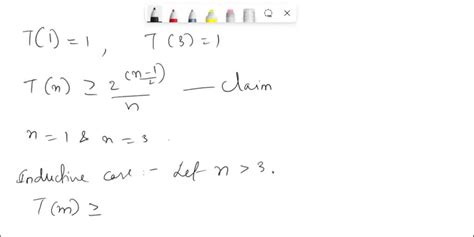 T(1) = 1 , T(3) = 1
T(n) ≥ 2^((n-1)/2) / n — Claim
n = 1 & n = 3 .
Inductive case :- Let n > 3 .
T(m) ≥